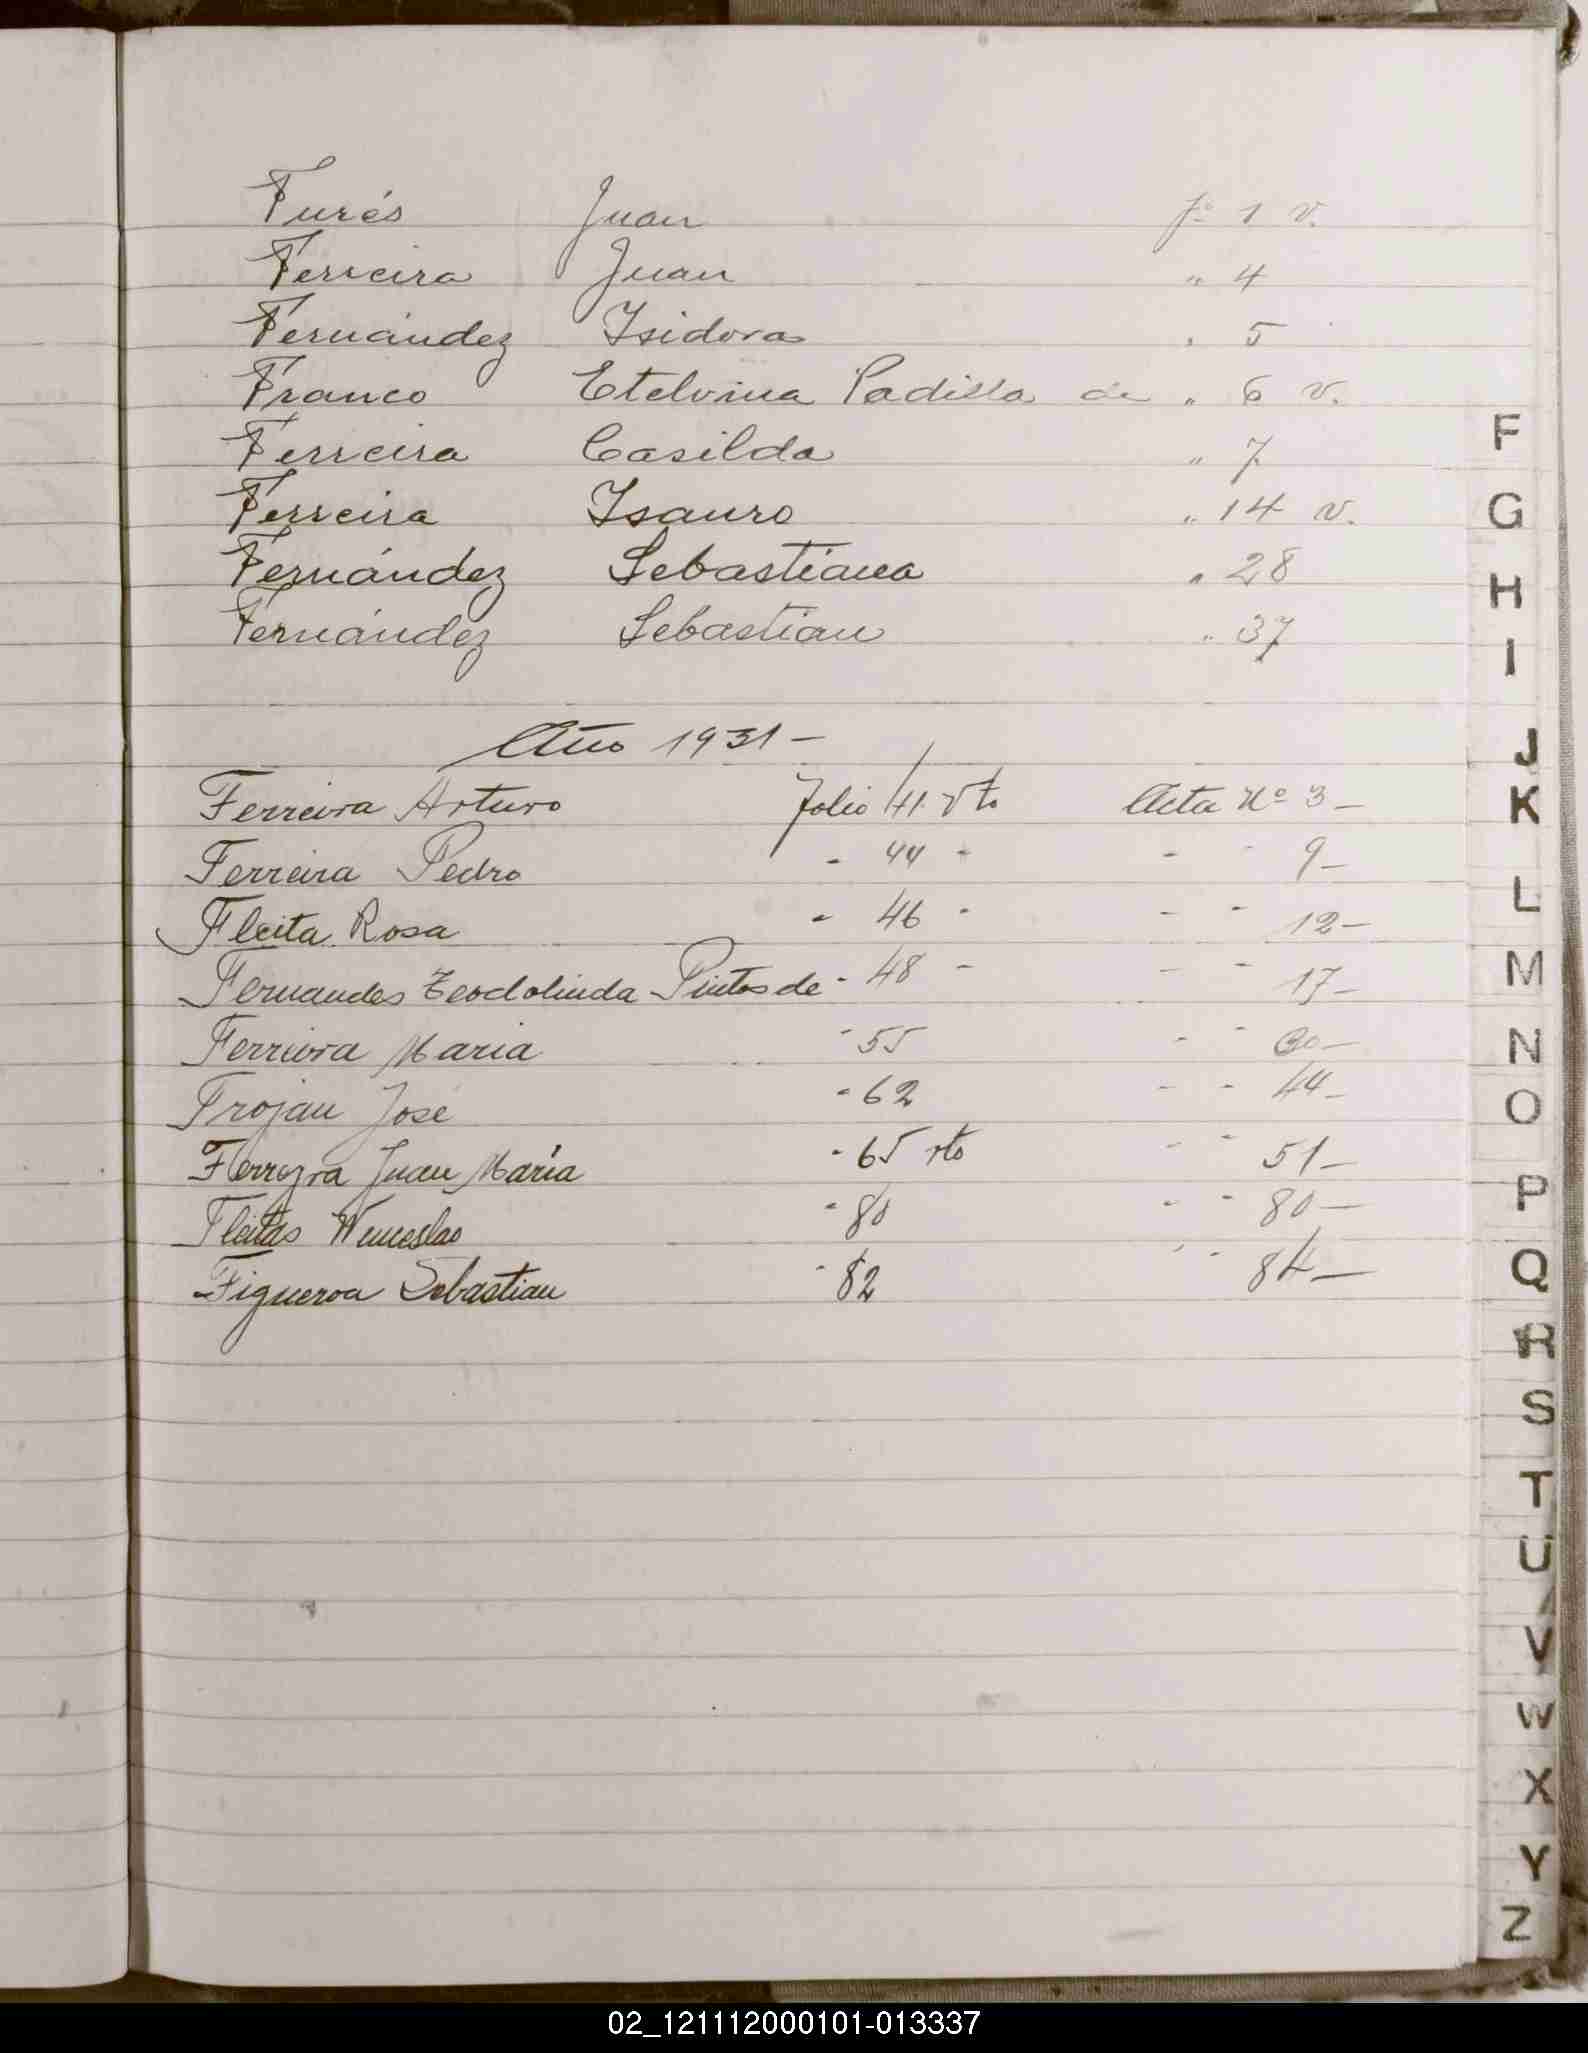 Furés Juan fº 1 v.
Ferreira Juan " 4
Fernández Isidora " 5
Franco Etelvina Padilla de " 6 v.
Ferreira Casilda " 7
Ferreira Isauro " 14 v.
Fernández Sebastiana " 28
Fernández Sebastian " 37
Año 1931 -
Ferreira Arturo folio 41 vto Acta Nº 3 -
Ferreira Pedro - 44 - - - 9 -
Fleita Rosa - 46 - - - 12 -
Fernandes Teodolinda Pintos de - 48 - - - 17 -
Ferreira Maria - 55 - - 30 -
Frojan José - 62 - - 44 -
Ferreyra Juan María - 65 vto - - 51 -
Fleitas Wenceslao - 80 - - 80 -
Figueroa Sebastian - 82 - - 84 -
F
G
H
I
J
K
L
M
N
O
P
Q
R
S
T
U
V
W
X
Y
Z
02_121112000101-013337